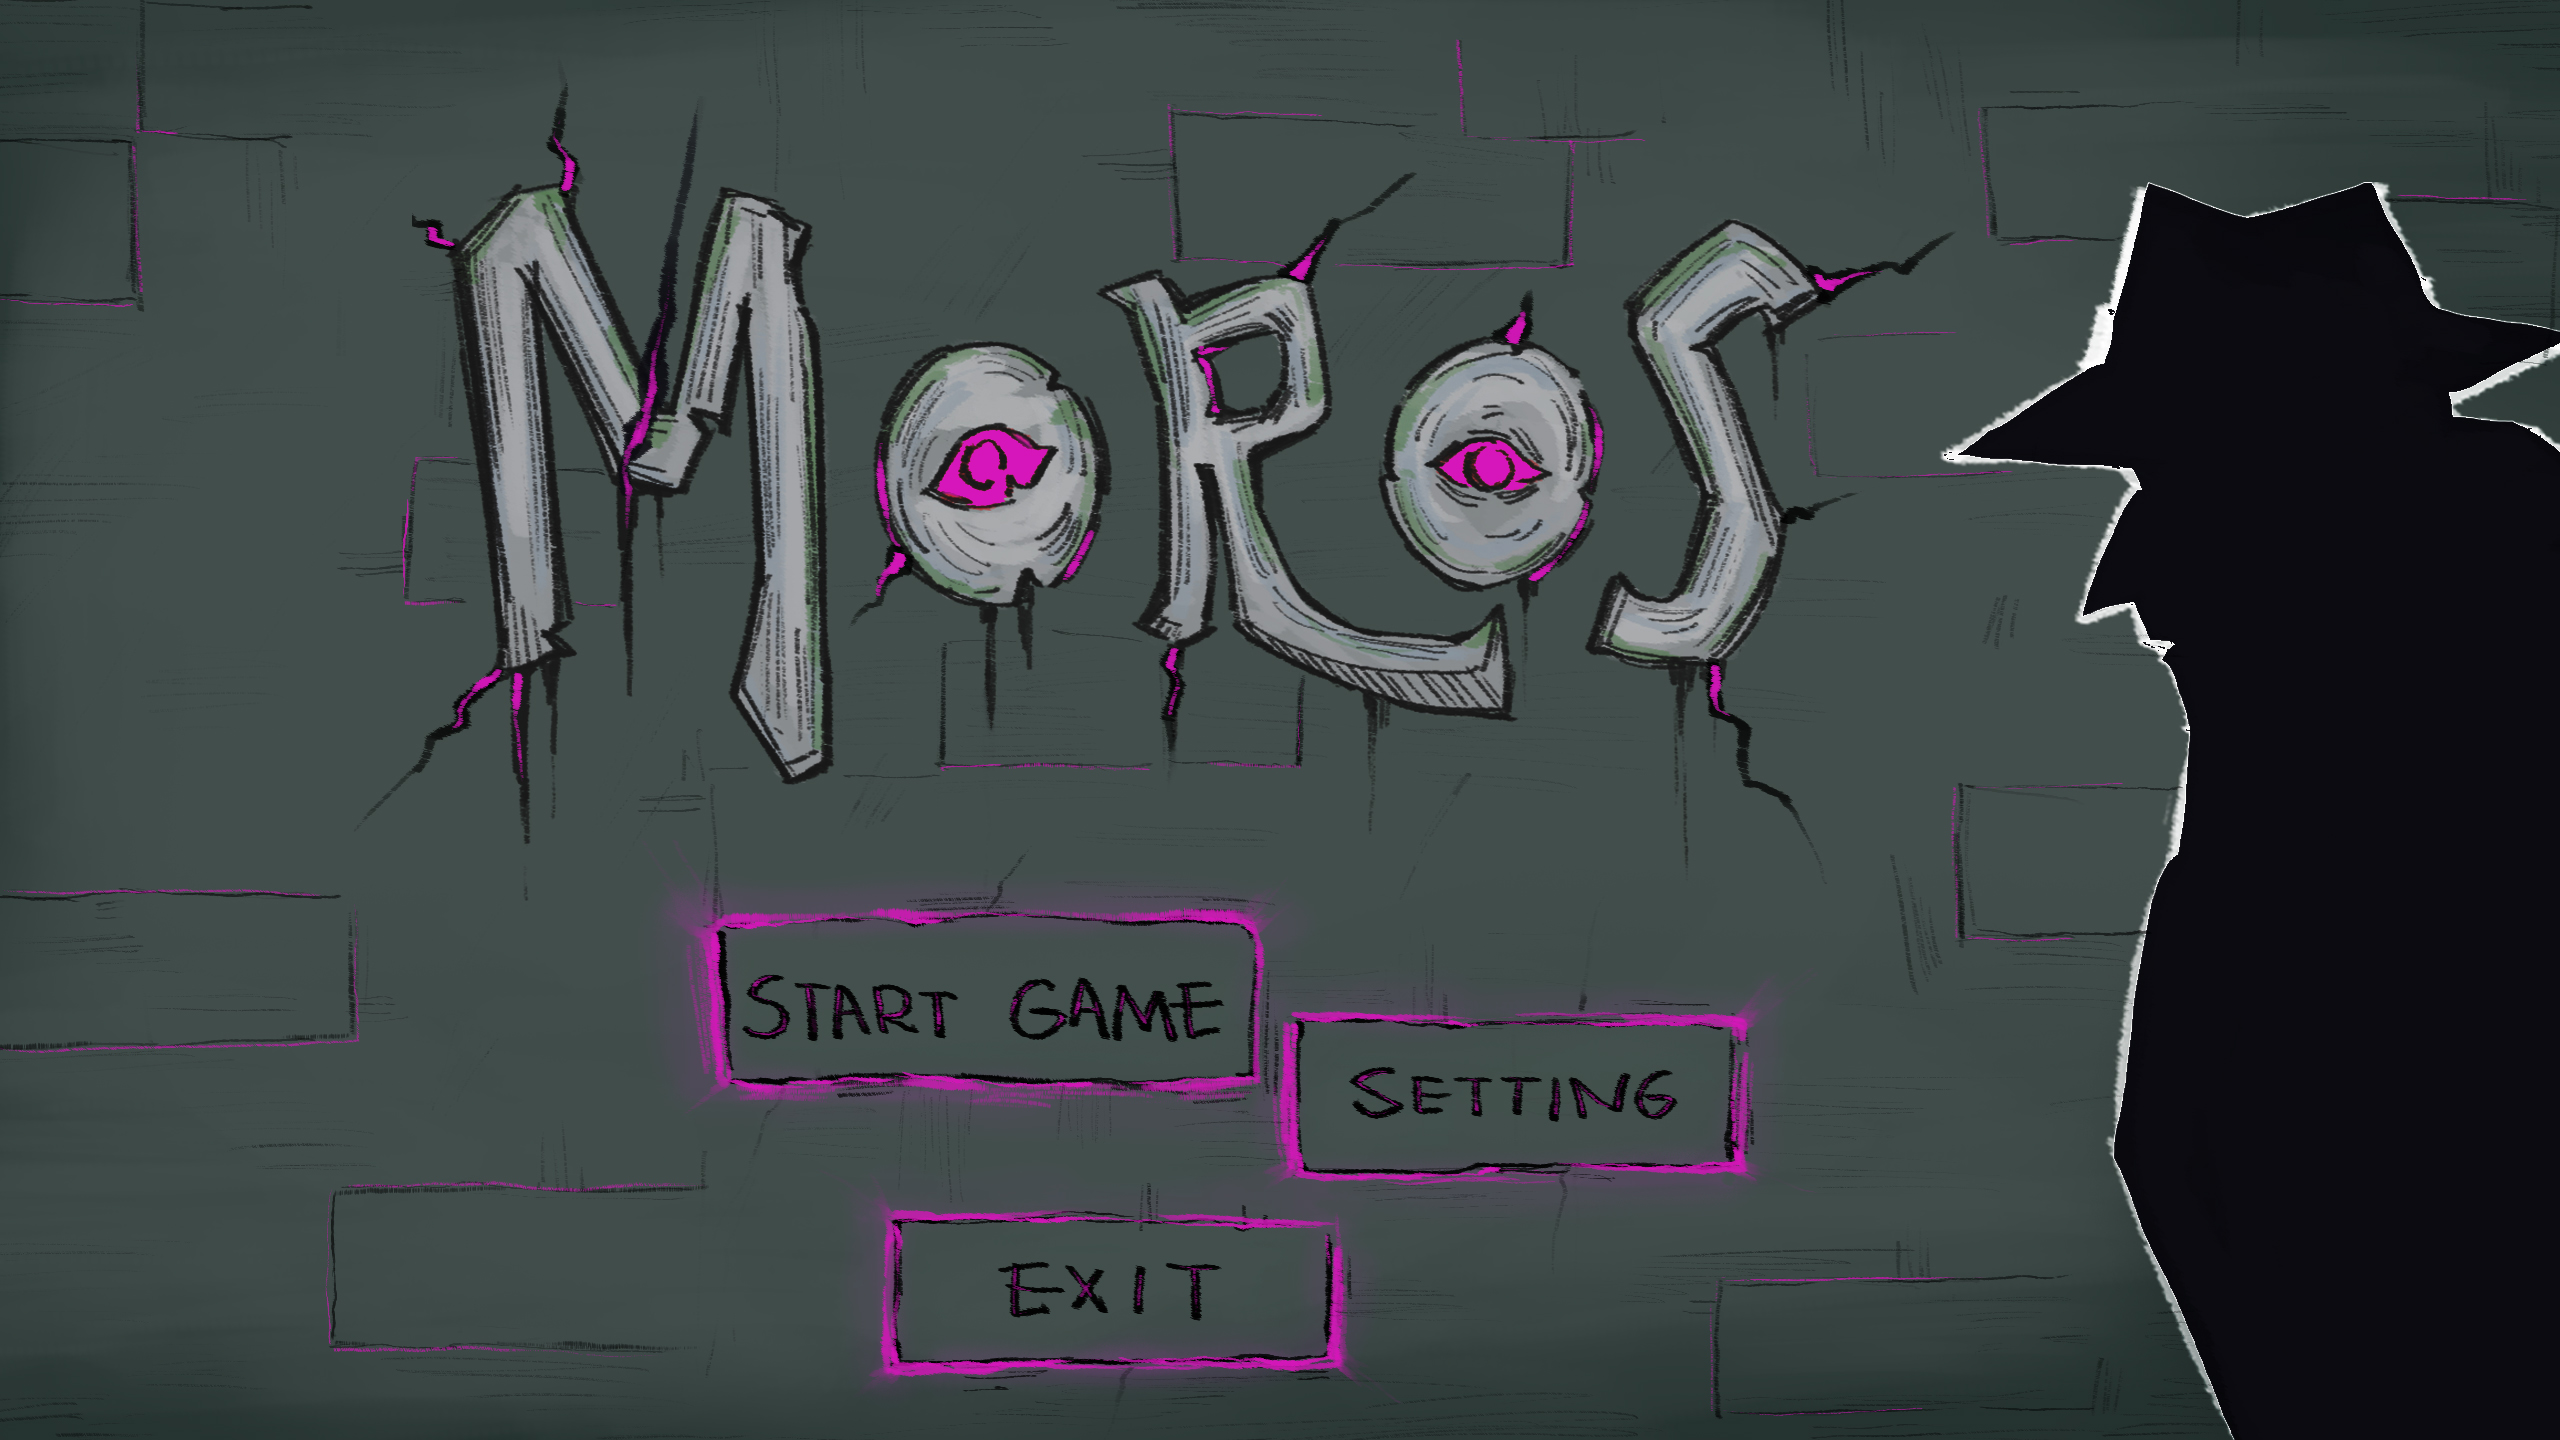 MoRoS
START GAME
SETTING
EXIT